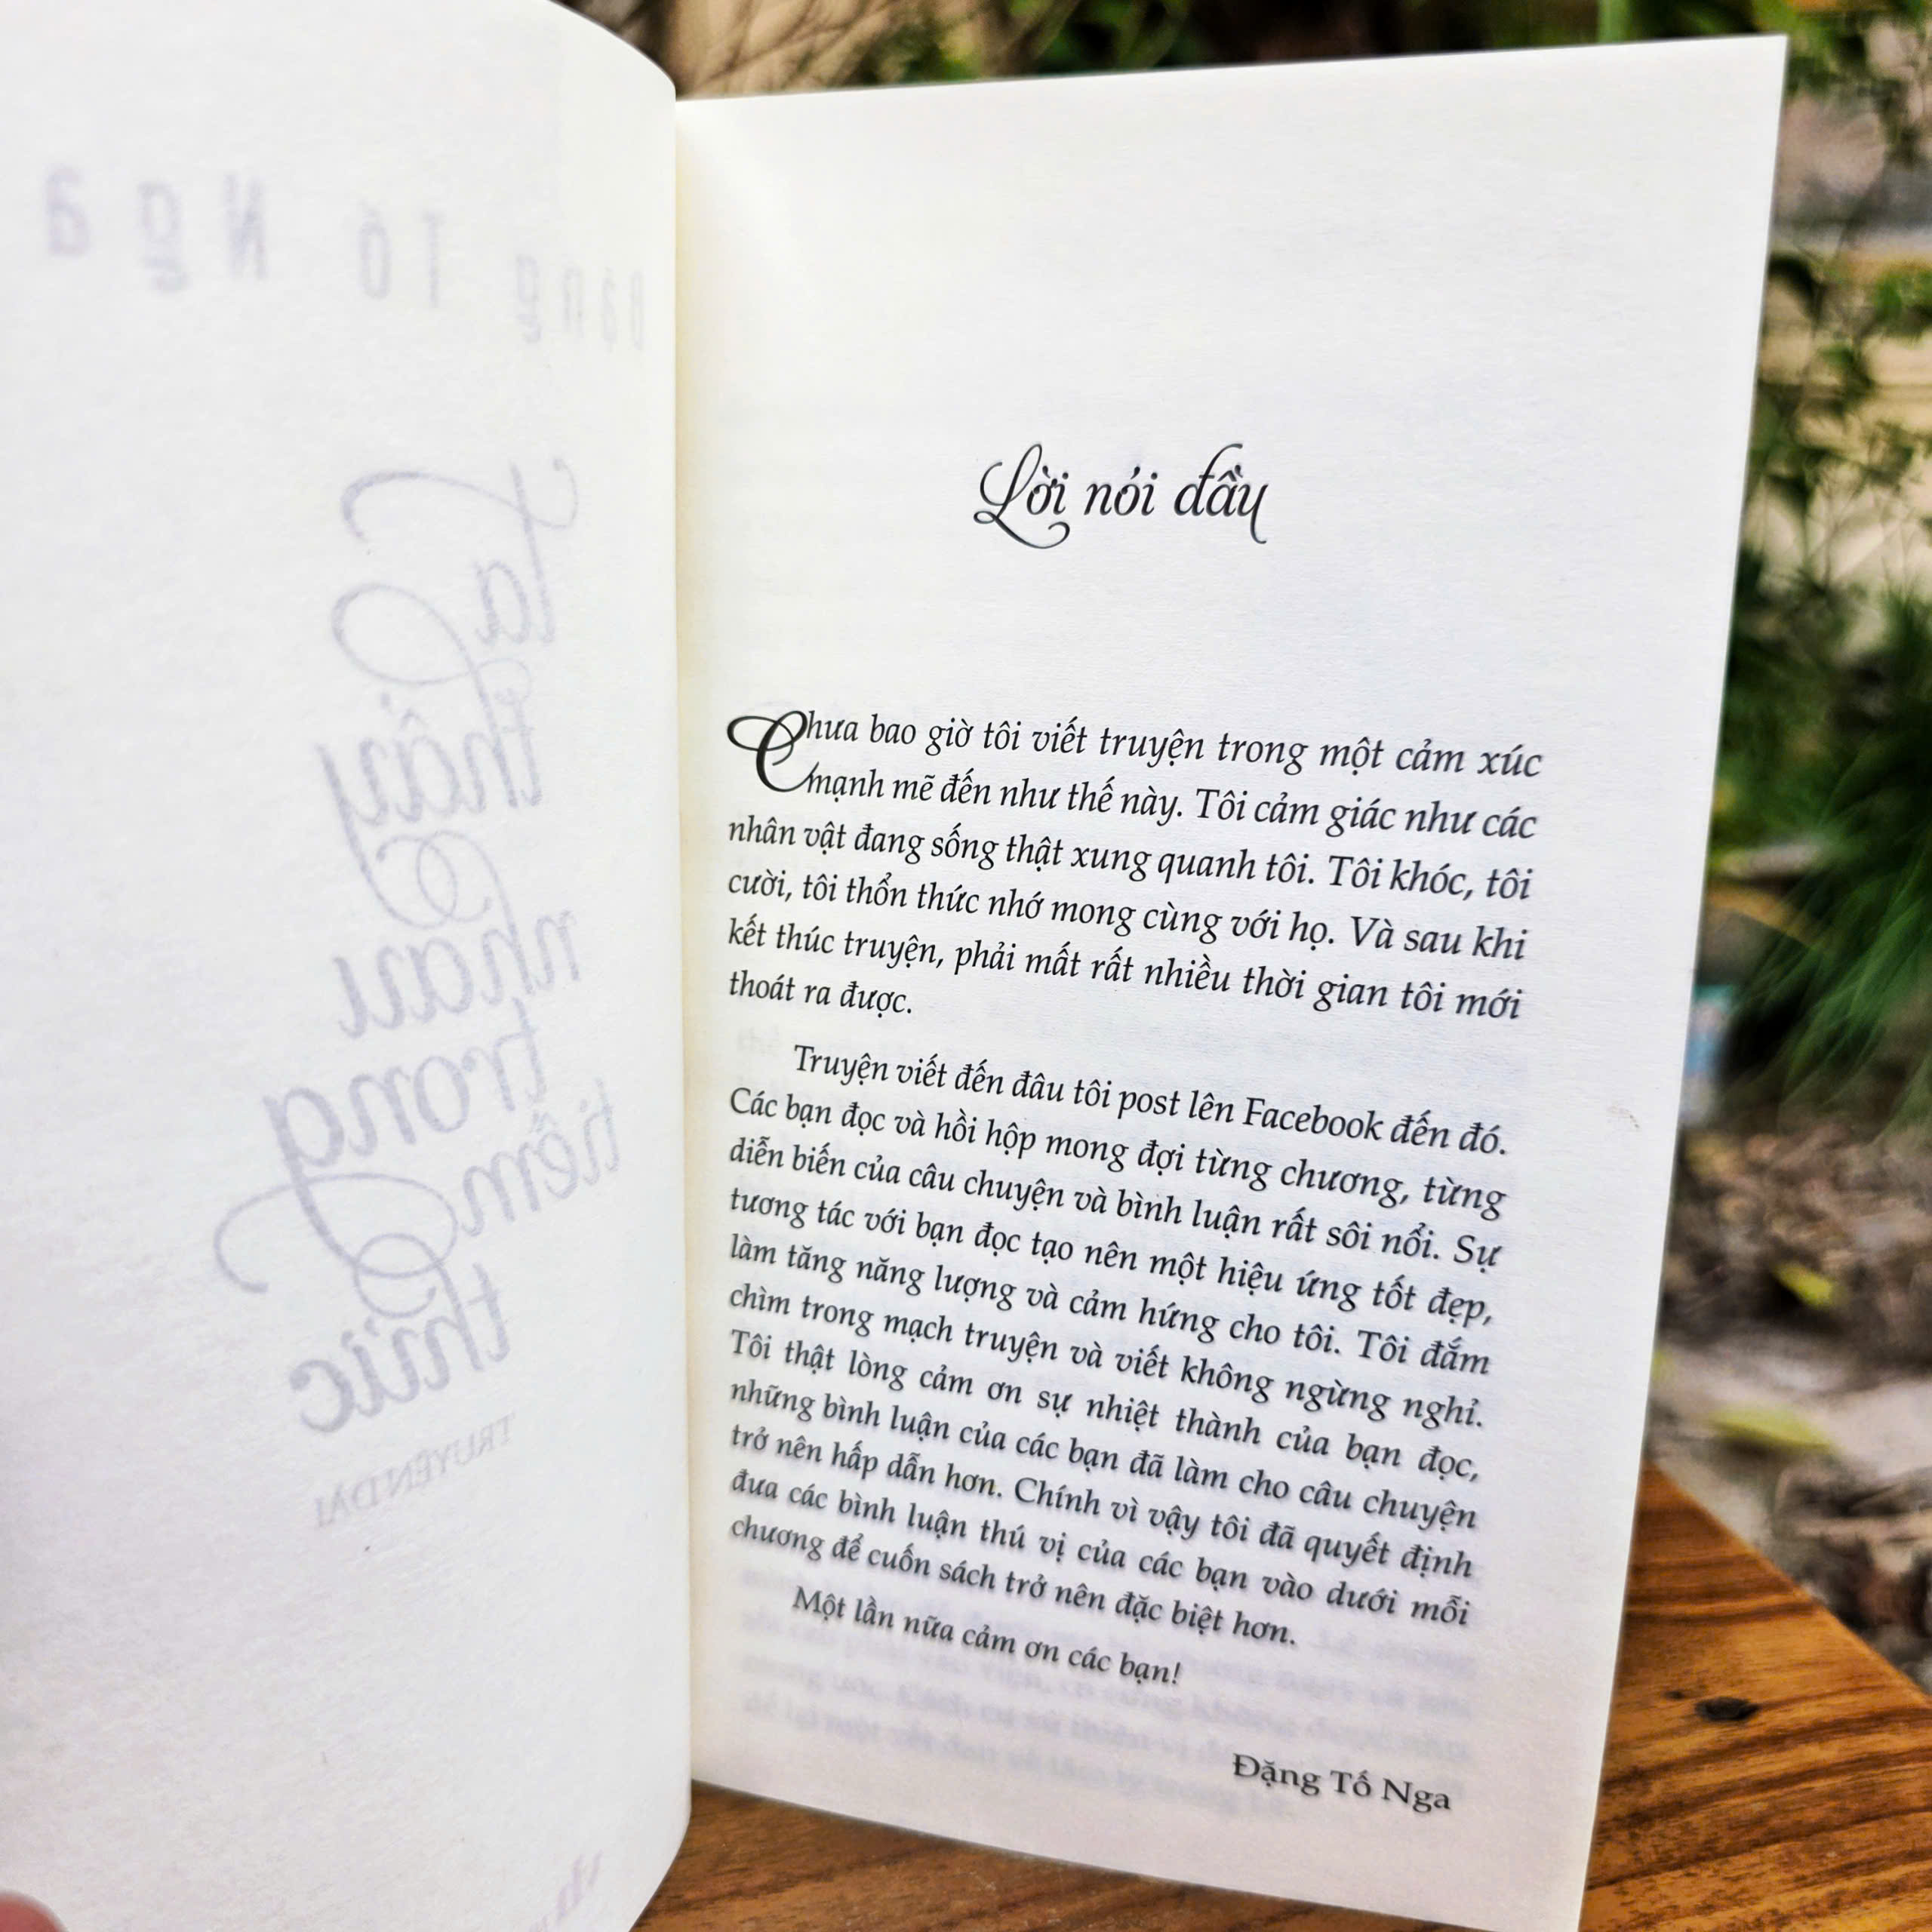 Đặng Tố Nga
Ta
thấy
nhau
trong
tiềm
thức
TRUYỆN DÀI
Lời nói đầu
Chưa bao giờ tôi viết truyện trong một cảm xúc
mạnh mẽ đến như thế này. Tôi cảm giác như các
nhân vật đang sống thật xung quanh tôi. Tôi khóc, tôi
cười, tôi thổn thức nhớ mong cùng với họ. Và sau khi
kết thúc truyện, phải mất rất nhiều thời gian tôi mới
thoát ra được.
Truyện viết đến đâu tôi post lên Facebook đến đó.
Các bạn đọc và hồi hộp mong đợi từng chương, từng
diễn biến của câu chuyện và bình luận rất sôi nổi. Sự
tương tác với bạn đọc tạo nên một hiệu ứng tốt đẹp,
làm tăng năng lượng và cảm hứng cho tôi. Tôi đắm
chìm trong mạch truyện và viết không ngừng nghỉ.
Tôi thật lòng cảm ơn sự nhiệt thành của bạn đọc,
những bình luận của các bạn đã làm cho câu chuyện
trở nên hấp dẫn hơn. Chính vì vậy tôi đã quyết định
đưa các bình luận thú vị của các bạn vào dưới mỗi
chương để cuốn sách trở nên đặc biệt hơn.
Một lần nữa cảm ơn các bạn!
Đặng Tố Nga